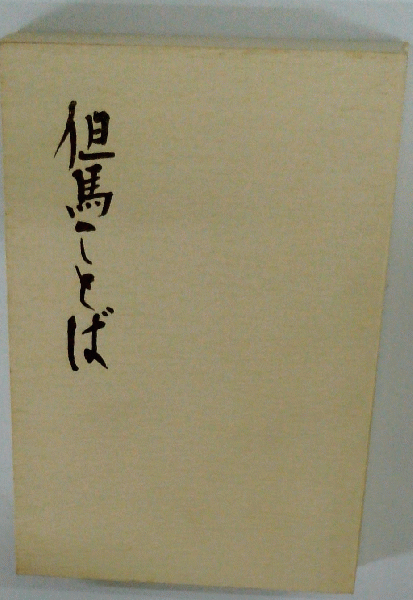 但馬ことば